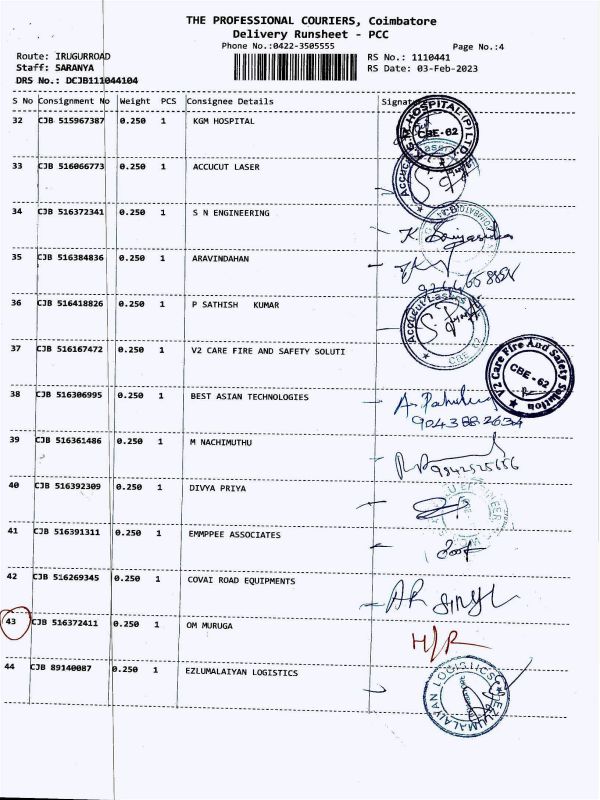 THE PROFESSIONAL COURIERS, Coimbatore
Delivery Runsheet - PCC
Phone No.:0422-3505555
Page No.:4
Route: IRUGURROAD
RS No.: 1110441
Staff: SARANYA
RS Date: 03-Feb-2023
DRS No.: DCJB111044104
S No Consignment No Weight PCS Consignee Details
32 CJB 515967387 0.250 1 KGM HOSPITAL
CBE-62
33 CJB 516066773 0.250 1 ACCUCUT LASER
34 CJB 516372341 0.250 1 S N ENGINEERING
35 CJB 516384836 0.250 1 ARAVINDAHAN
36 CJB 516418826 0.250 1 P SATHISH KUMAR
37 CJB 516167472 0.250 1 V2 CARE FIRE AND SAFETY SOLUTI
V2 Care Fire And Safety Solution
CBE-62
38 CJB 516306995 0.250 1 BEST ASIAN TECHNOLOGIES
39 CJB 516361486 0.250 1 M NACHIMUTHU
40 CJB 516392309 0.250 1 DIVYA PRIYA
41 CJB 516391311 0.250 1 EMMPPEE ASSOCIATES
42 CJB 516269345 0.250 1 COVAI ROAD EQUIPMENTS
43 CJB 516372411 0.250 1 OM MURUGA
H/R
44 CJB 89140087 0.250 1 EZLUMALAIYAN LOGISTICS